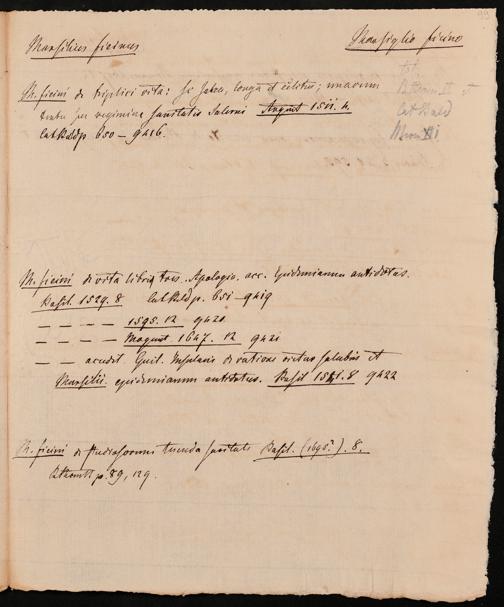 99
Marsilius ficinus Marsiglio ficino
M. ficini de triplici vita: sc sana, longa et cœlitus; unacum
textu sen regimine sanitatis Salerni August 1511. 4.
cat Bald p. 650 – 9416.
M. ficini de vita libri tres. Apologia. acc. Epidemiarum antidotus.
Basil. 1529. 8 cat Bald p. 651 – 9419
– – – – 1595. 12 9420
– – – – Mogunt 1647. 12 9421
– – accedit Guil. Insulani de ratione victus salubris et
Marsilii. epidemiarum antidotus. Basil 1541. 8 9422
M. ficini de studiosorum tuenda sanitate Basil. (1695?). 8.
p. 89, 129.